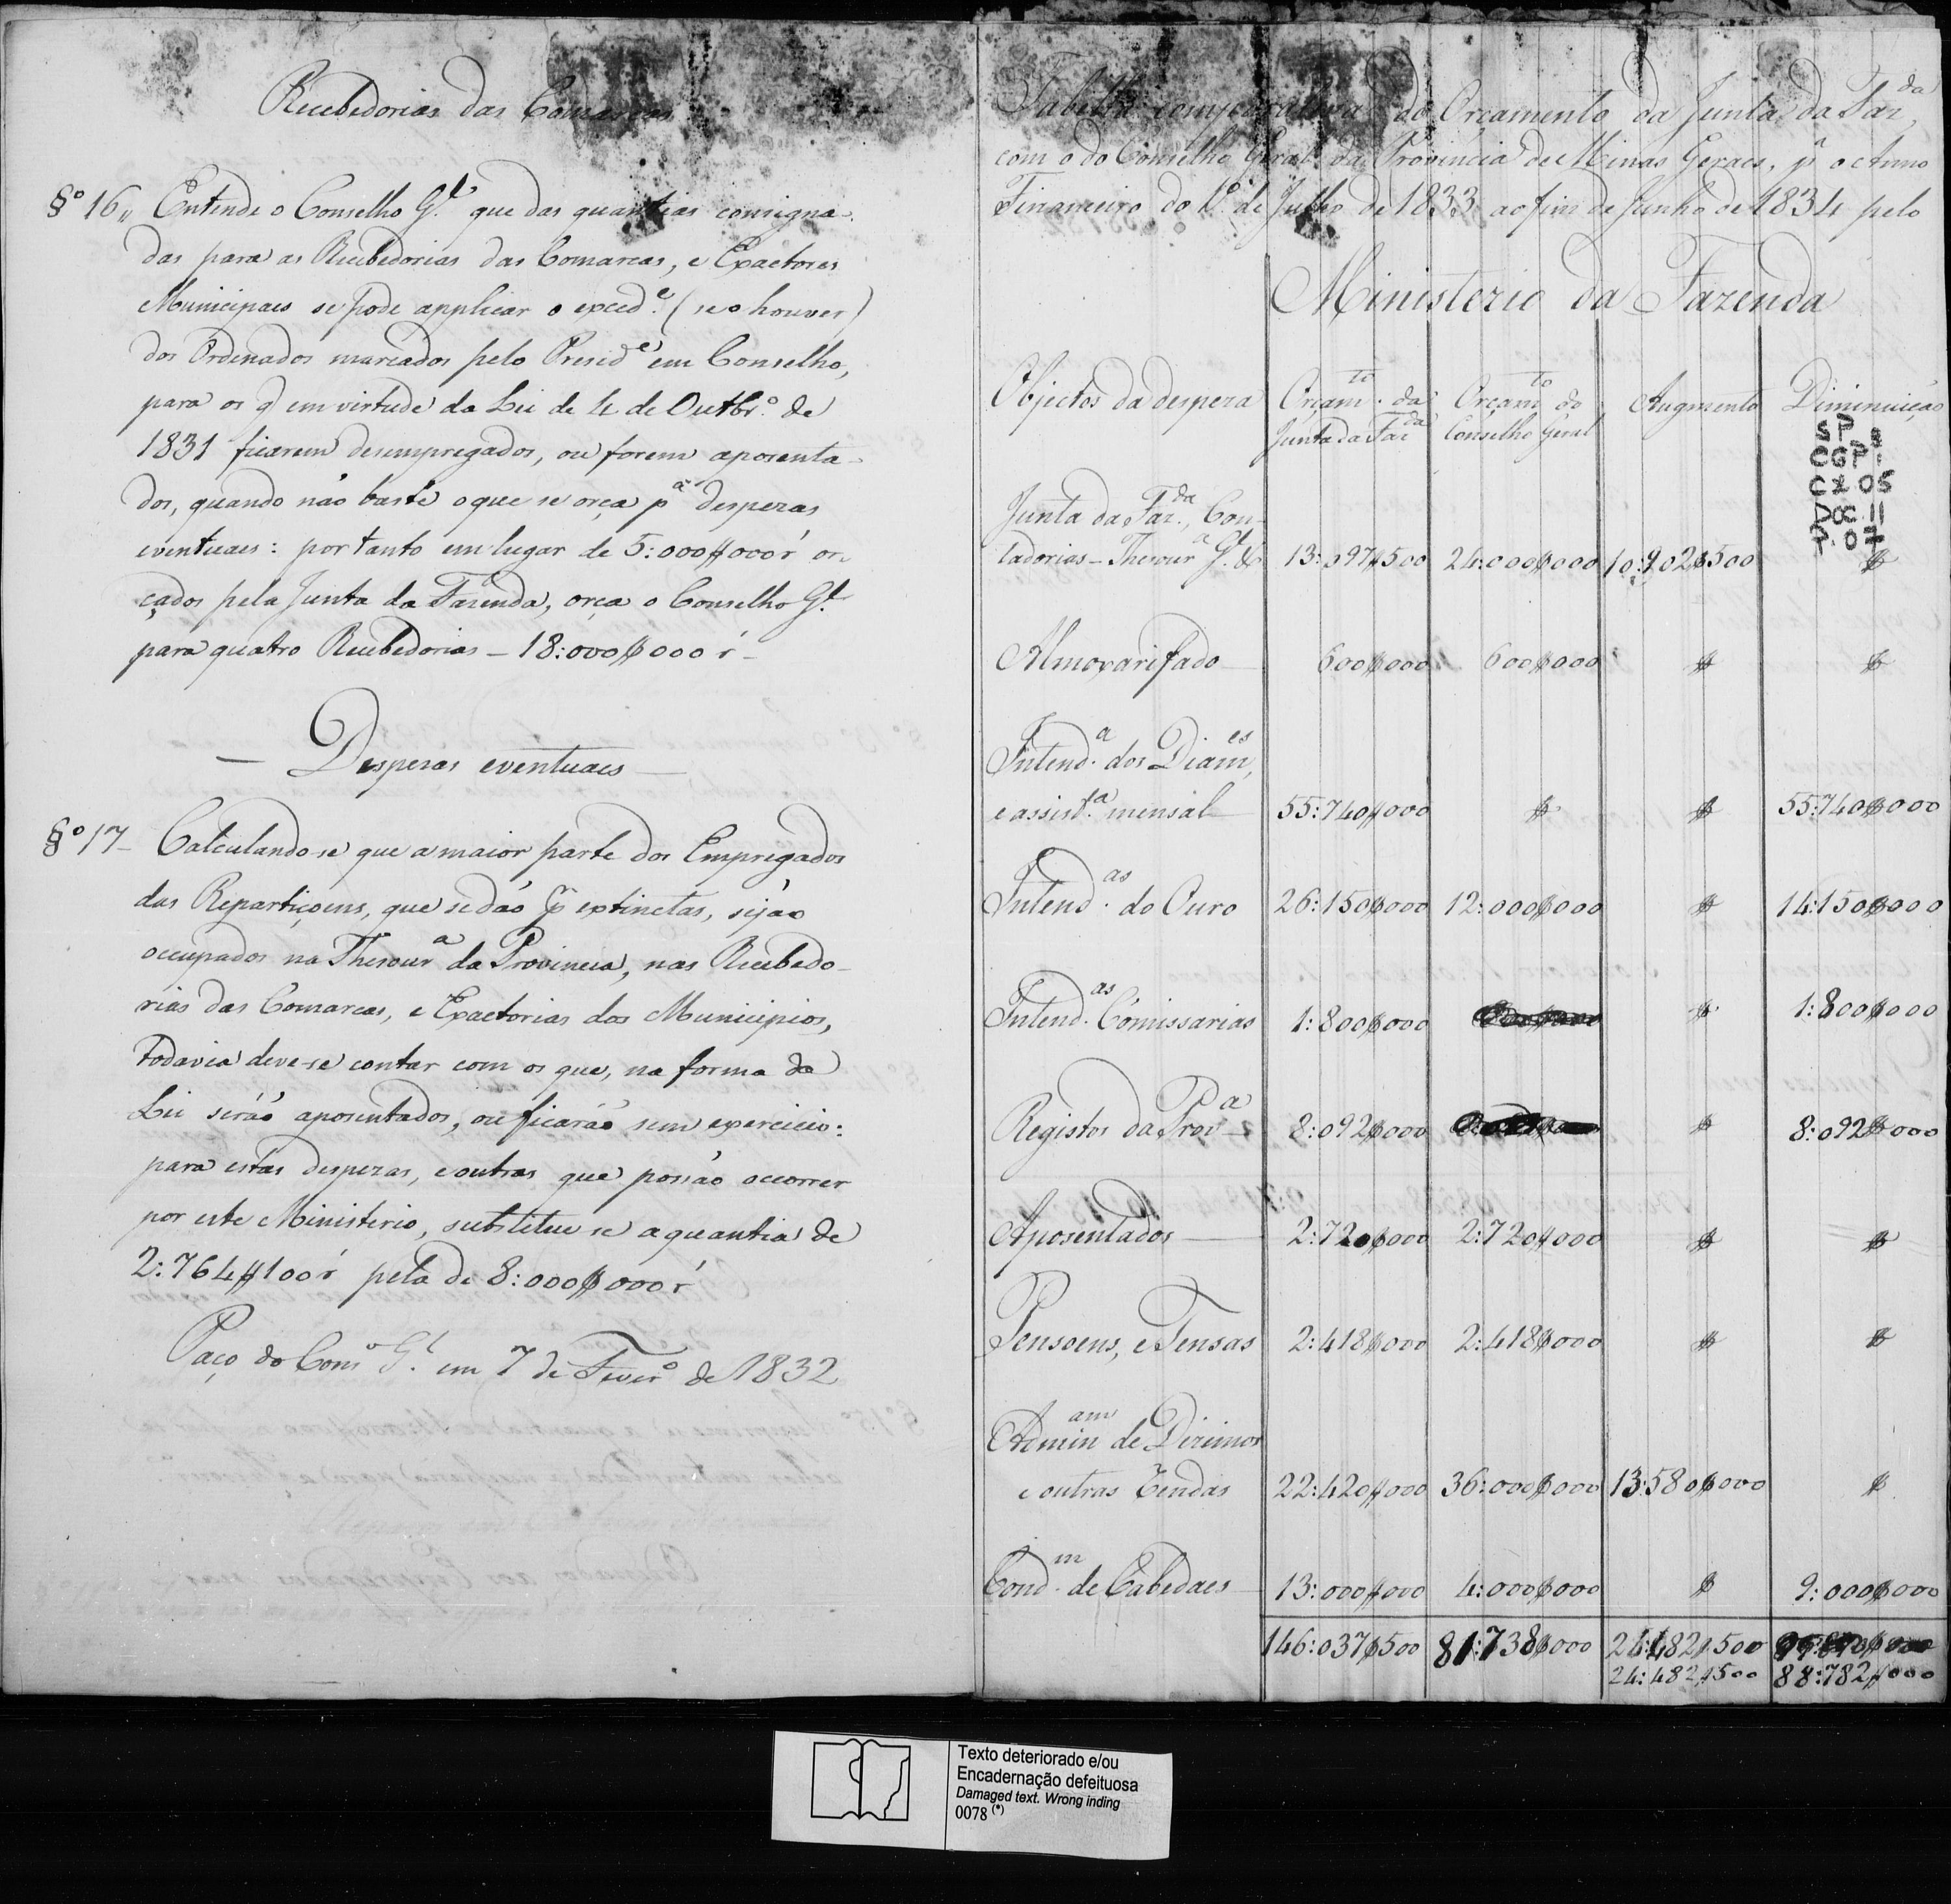 Recebedorias das Comarcas
§º 16,, Entende o Conselho G.l que das quantias consigna-
das para as Recebedorias das Comarcas, e Exactores
Municipaes se pode applicar o exced.e (se o houver)
dos Ordenados marcados pelo Presid.e em Conselho,
para os q̃ em virtude da Lei de 4 de Outbr.o de
1831 ficarem desempregados, ou forem aposenta-
dos, quando não baste o que se orça p.a despezas
eventuaes: por tanto em lugar de 5:000$000 r̃ or-
çados pela Junta da Fazenda, orça o Conselho G.l
para quatro Recebedorias - 18:000$000 r̃ -
— Despezas eventuaes —
§º 17 - Calculando-se que a maior parte dos Empregados
das Repartiçoens, que se dão p.r extinctas, sejão
occupados na Thesour.a da Provincia, nas Recebedo-
rias das Comarcas, e Exactorias dos Municipios,
todavia deve-se contar com os que, na forma da
Lei serão aposentados, ou ficarão sem exercicio:
para estas despezas, e outras que possão occorrer
por este Ministerio, substitue se a quantia de
2:764$100 r̃ pela de 8:000$000 r̃
Paço do Cons.o G.l em 7 de Fever.o de 1832
Tabella comparativa do Orçamento da Junta da Faz.da
com o do Conselho Geral da Provincia de Minas Geraes, p.a o Anno
Financeiro do 1.o de Julho de 1833 ao fim de Junho de 1834 pelo
Ministerio da Fazenda
Objectos da despeza Orçam.to da Junta da Faz.da Orçam.to do Conselho Geral Augmento Diminuição
SP 8
CGP 1
CX 05
DOC 11
P. 07
Junta da Faz.da, Con-
tadorias - Thesour.a G.l &c 13:097$500 24:000$000 10:902$500 $
Almoxarifado 600$000 600$000 $ $
Intend.a dos Diam.es,
e assist.a mensal 55:740$000 $ $ 55:740$000
Intend.as do Ouro 26:150$000 12:000$000 $ 14:150$000
Intend.as Comissarias 1:800$000 $ 1:800$000
Registos da Prov.a 8:092$000 $ 8:092$000
Aposentados 2:720$000 2:720$000 $ $
Pensoens, e Tensas 2:418$000 2:418$000 $ $
Admin.am de Dizimos
e outras Rendas 22:420$000 36:000$000 13:580$000 $
Cond.m de Cabedaes 13:000$000 4:000$000 $ 9:000$000
146:037$500 81:738$000 24:482$500
24:482$500 88:782$000
Texto deteriorado e/ou
Encadernação defeituosa
Damaged text. Wrong inding
0078 (*)